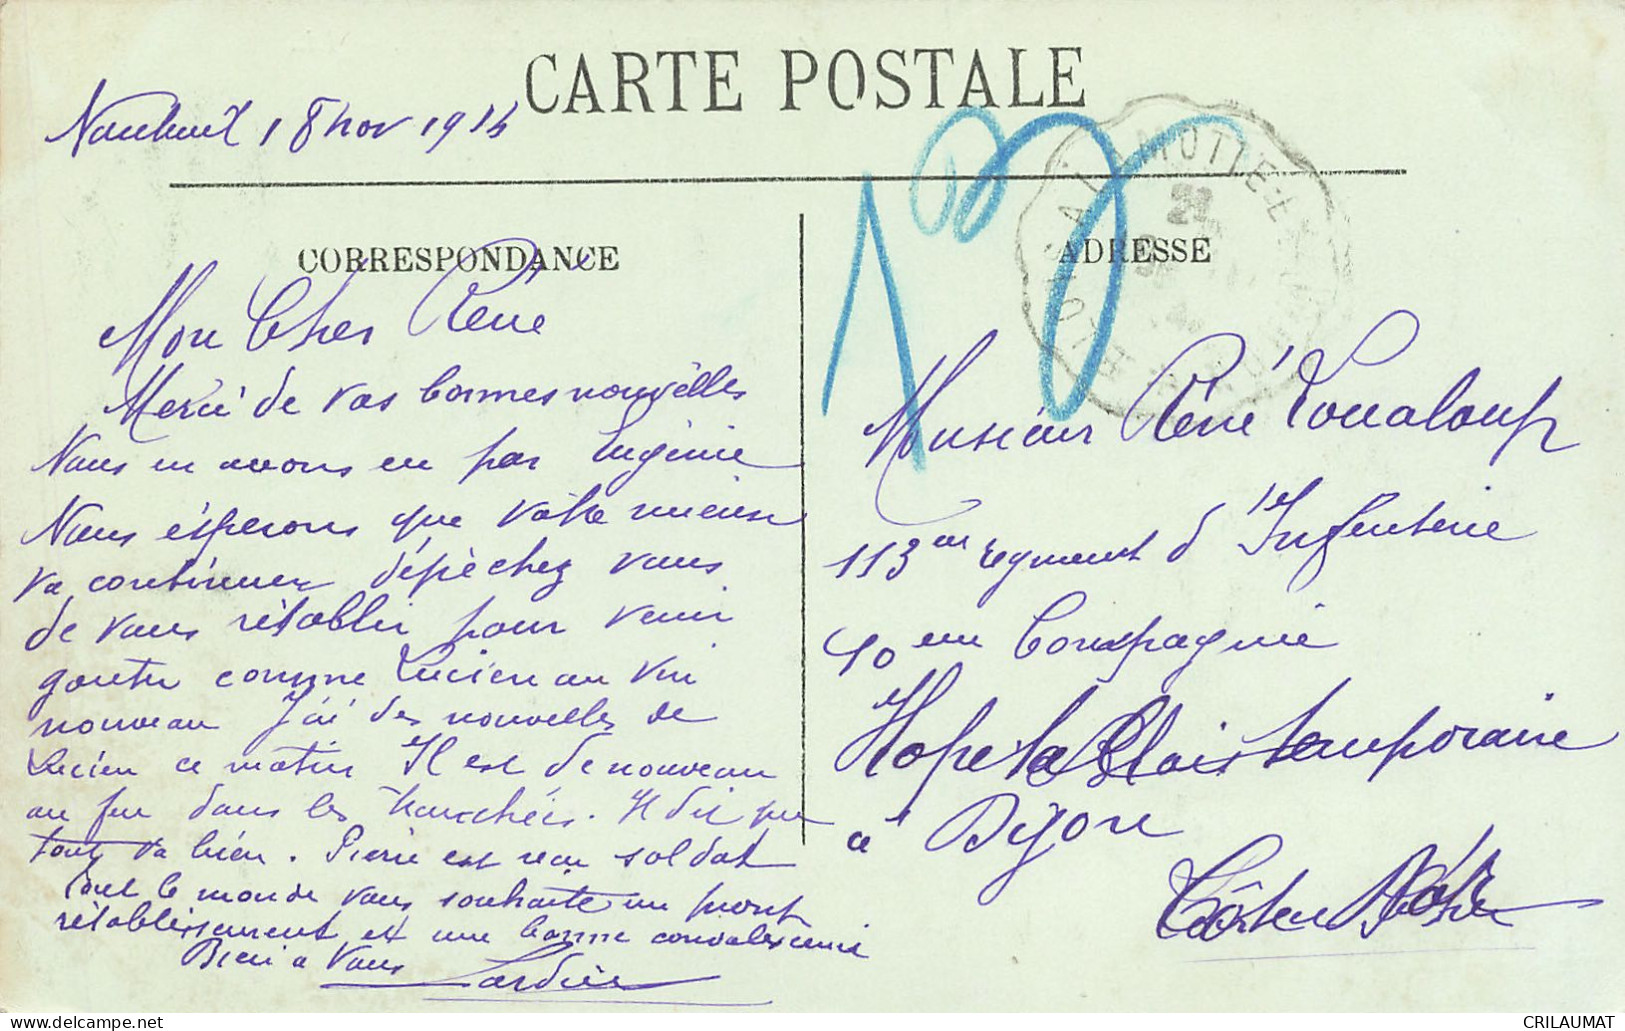 CARTE POSTALE
18 nov 1914
CORRESPONDANCE
Mon Cher René
Merci de vos bonnes nouvelles
Nous en avons eu par Eugénie
Nous éspérons que votre mieux
va continuer dépèchez vous
de vous rétablir pour venir
gouter comme Lucien au vin
nouveau J'ai des nouvelles de
Lucien ce matin Il est de nouveau
au feu dans les tranchées. Il dit que
tout va bien. Pierre est reçu soldat
tout le monde vous souhaite un prompt
rétablissement et une bonne convalescence
Bien a vous
ADRESSE
Monsieur René
113em regiment d'Infenterie
10 em Compagnie
Hopital temporaire
a Dijon
Côte d'Or
CRILAUMAT